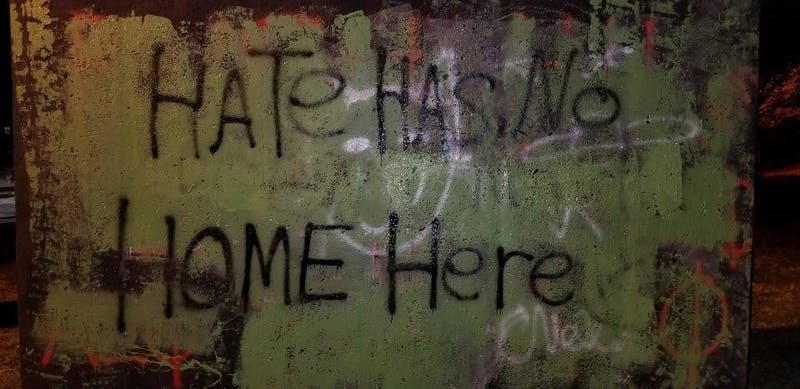 HATe HAS No
HOME Here